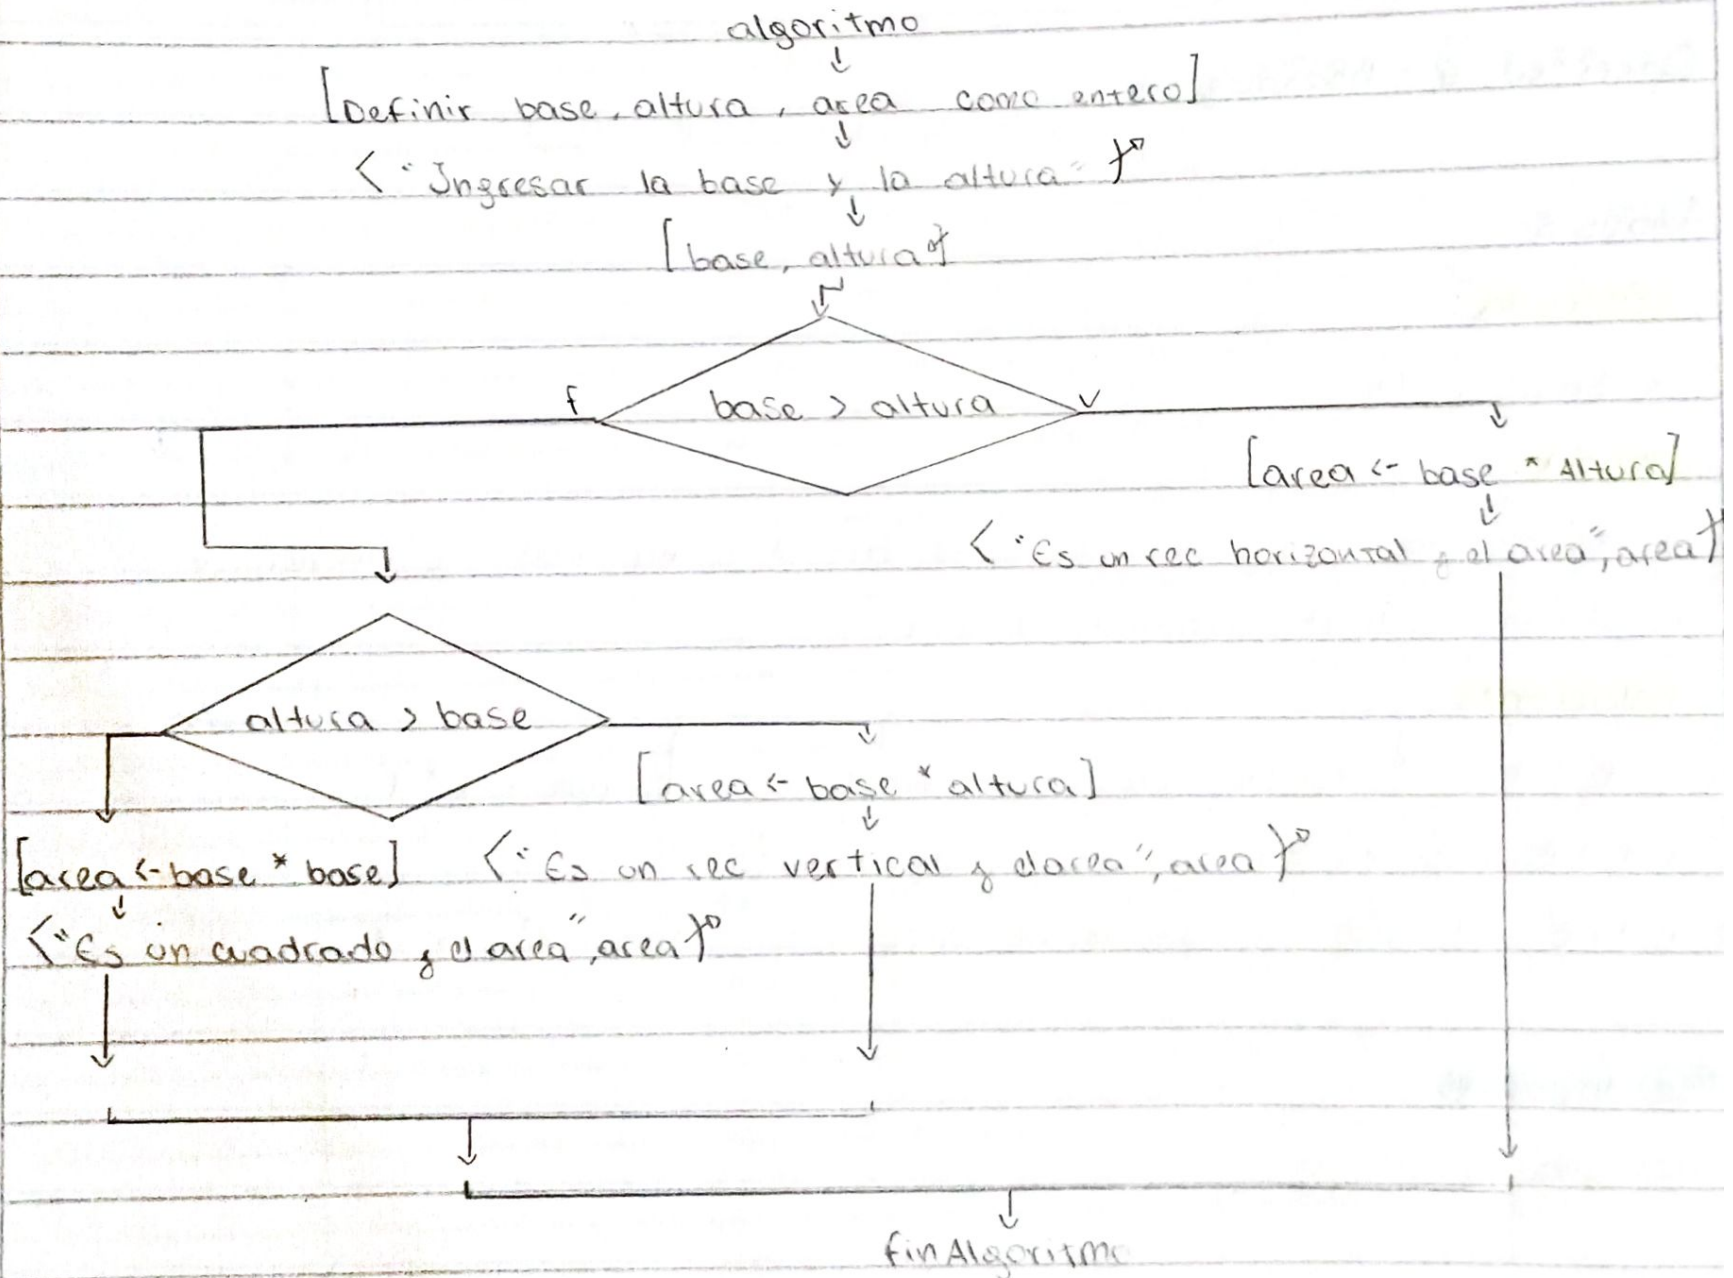 algoritmo
[Definir base, altura, area como entero]
"Ingresar la base y la altura"
[base, altura]
f
base > altura
v
[area <- base * Altura]
"Es un rec horizontal y el area", area
altura > base
[area <- base * altura]
[area <- base * base]
"Es un rec vertical y el area", area
"Es un cuadrado y el area", area
finAlgoritmo